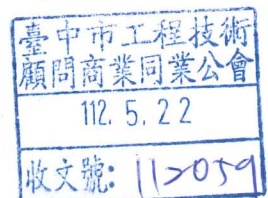 臺中市工程技術
顧問商業同業公會
112. 5. 22
收文號: 112059